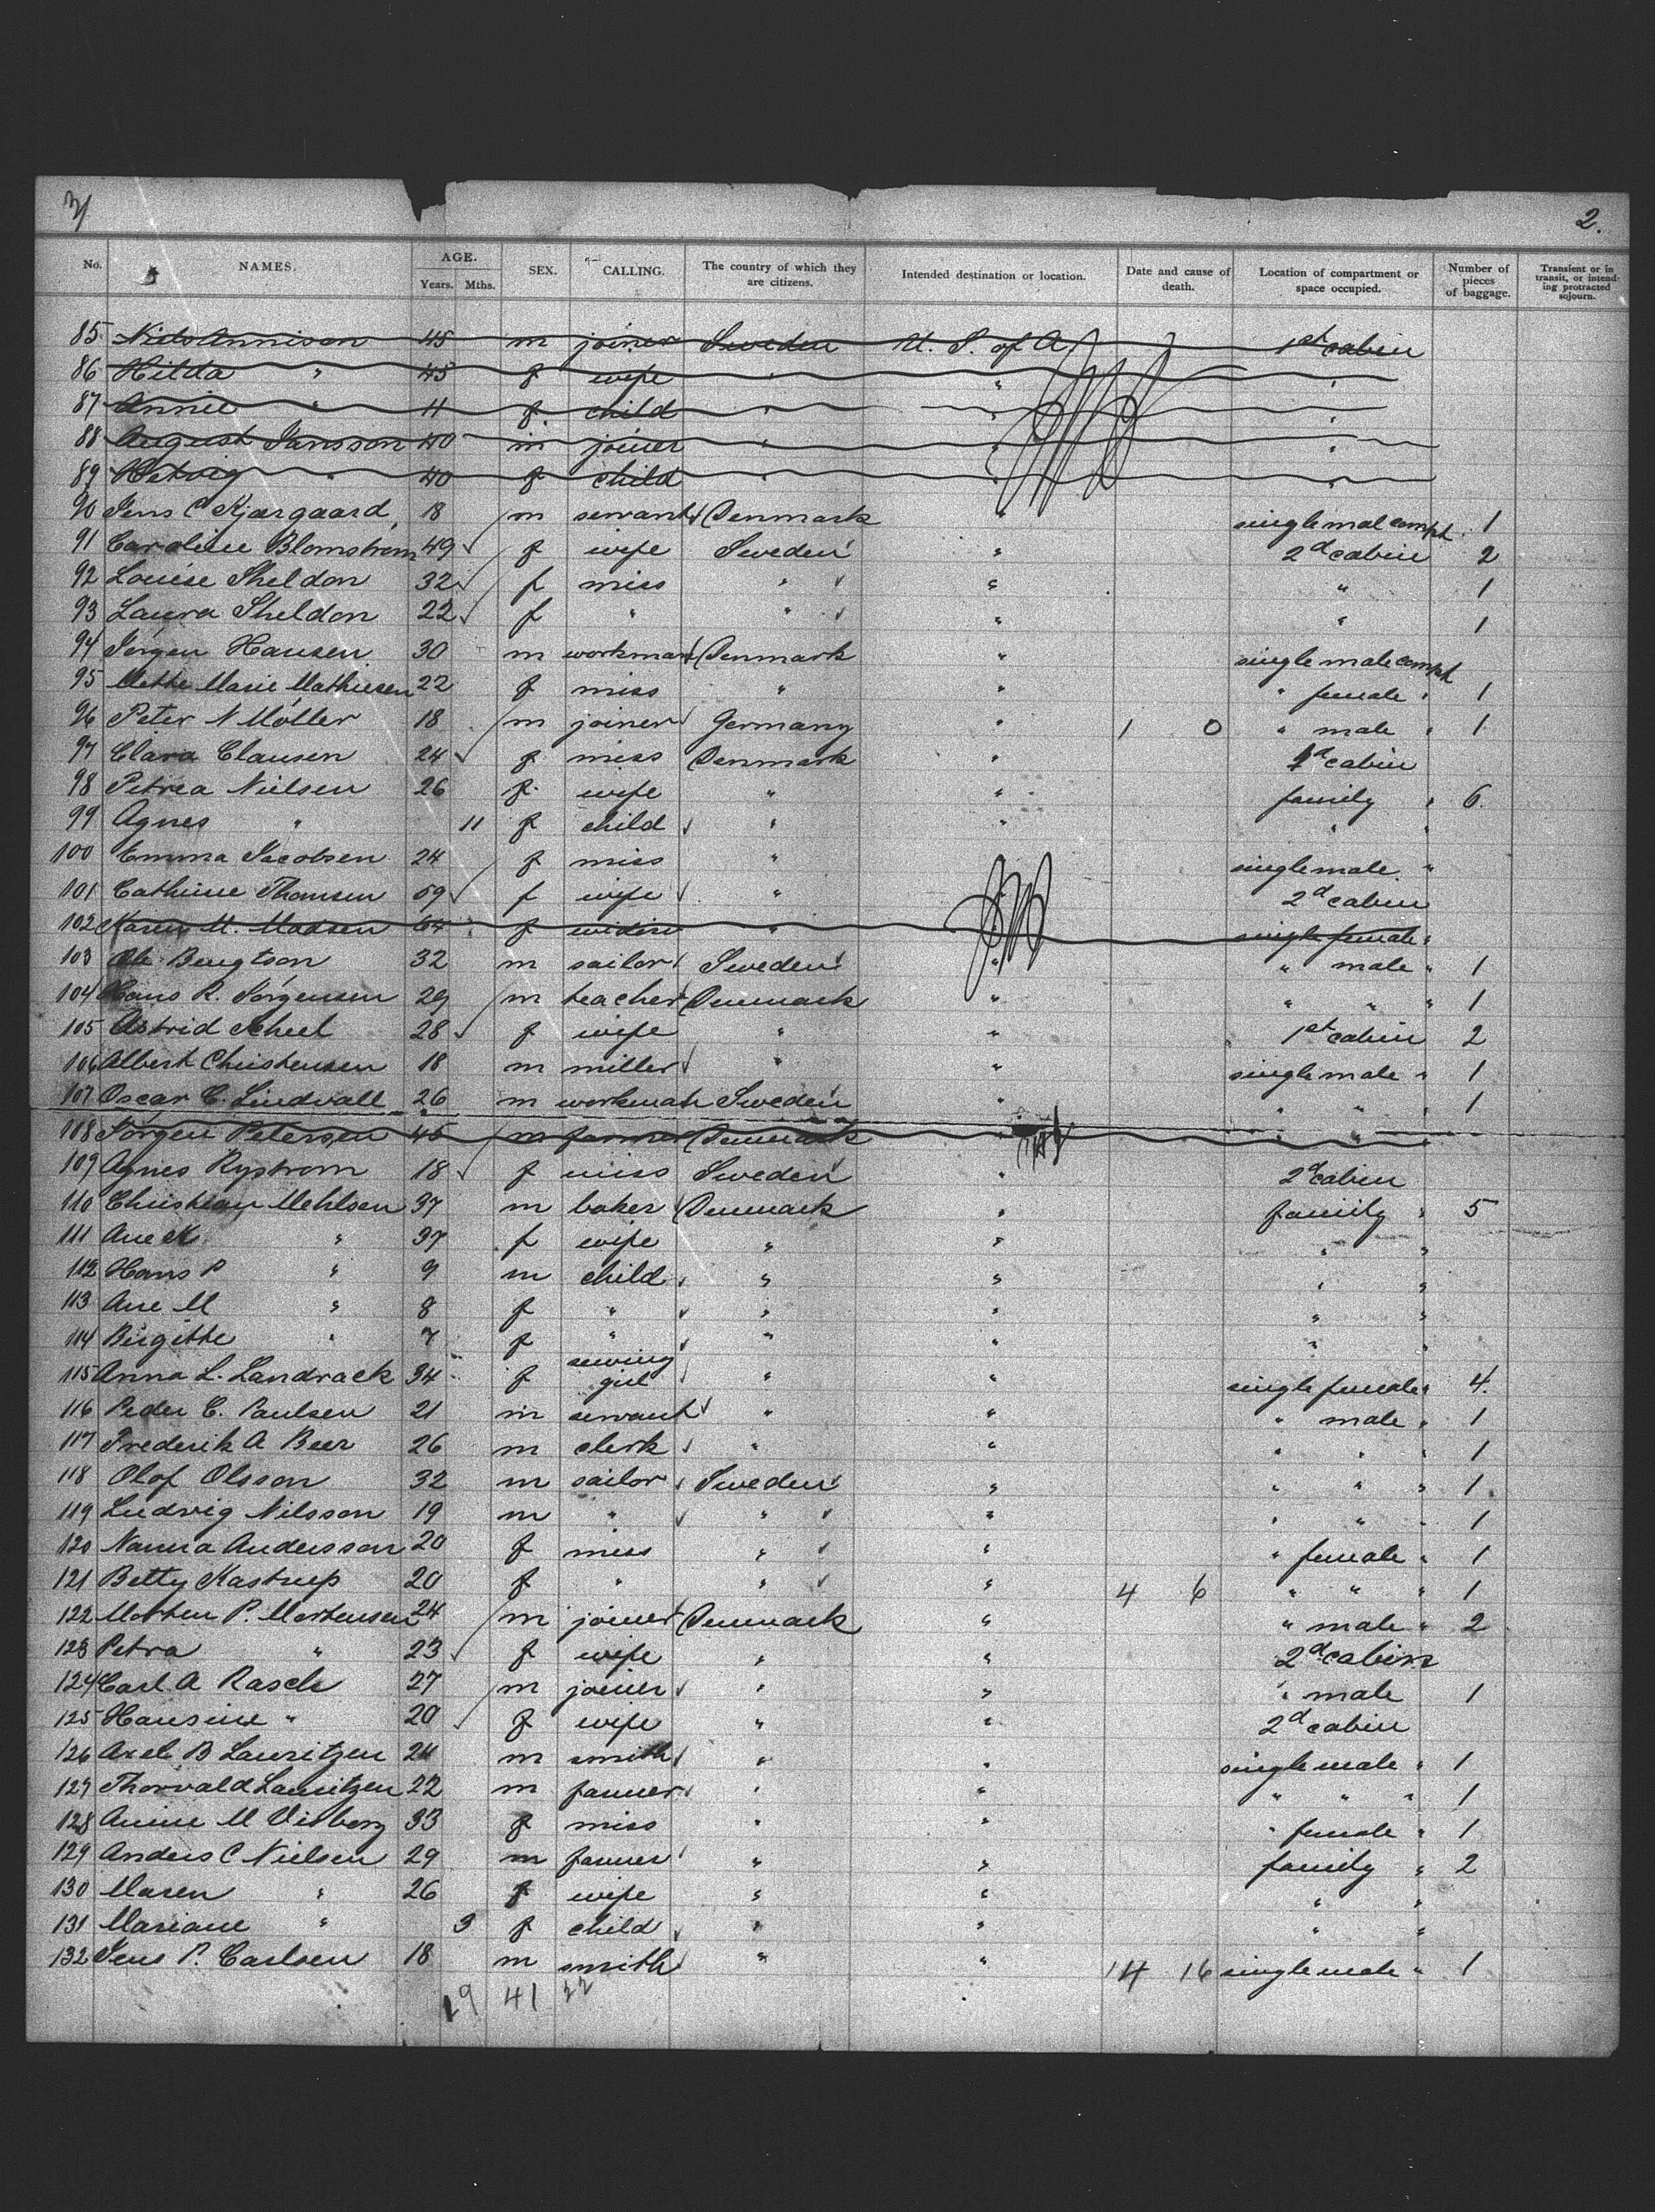 3/ 2.
No. NAMES. AGE. Years. Mths. SEX. CALLING. The country of which they are citizens. Intended destination or location. Date and cause of death. Location of compartment or space occupied. Number of pieces of baggage. Transient or in transit, or intending protracted sojourn.
85 Niels Annison 45 m joiner Sweden U. S. of A 1st cabin
86 Hilda " 45 f wife " " "
87 Annie " 11 f child " " "
88 August Jansson 40 m joiner " " "
89 Hedvig " 40 f child " " "
90 Jens C Kjærgaard 18 m servant Denmark " single mal compt. 1
91 Caroline Blomstrom 49 f wife Sweden " 2d cabin 2
92 Louise Sheldon 32 f miss " " " 1
93 Laura Sheldon 22 f " " " " 1
94 Jørgen Hansen 30 m workman Denmark " single male compt
95 Mette Marie Mathiesen 22 f miss " " " female " 1
96 Peter N Möller 18 m joiner Germany " 1 0 " male " 1
97 Clara Clausen 24 f miss Denmark " 2d cabin
98 Petrea Nielsen 26 f wife " " family " 6
99 Agnes " 11 f child " " " "
100 Emma Jacobsen 24 f miss " single male "
101 Cathine Thomsen 59 f wife " 2d cabin
102 Karen M. Madsen 64 f widow " single female "
103 Ole Bengtson 32 m sailor Sweden " " male " 1
104 Hans R. Jørgensen 29 m teacher Denmark " " " " 1
105 Astrid Scheel 28 f wife " " 1st cabin 2
106 Albert Christensen 18 m miller " " single male " 1
107 Oscar C. Lindvall 26 m workman Sweden " " " " 1
108 Jörgen Petersen 45 m farmer Denmark " " "
109 Agnes Rystrom 18 f miss Sweden " 2d cabin
110 Christian Mehlsen 37 m baker Denmark " family " 5
111 Ane K. " 37 f wife " " " "
112 Hans P " 9 m child " " " "
113 Ane M " 8 f " " " " "
114 Birgitte " 7 f " " " " "
115 Anna L. Landrack 34 f sewing girl " " single female " 4.
116 Peder C. Paulsen 21 m servant " " " male " 1
117 Frederik A Beer 26 m clerk " " " " " 1
118 Olof Olsson 32 m sailor Sweden " " " " 1
119 Ludvig Nilsson 19 m " " " " " 1
120 Nanna Andersson 20 f miss " " " female " 1
121 Betty Kastrup 20 f " " " 4 6 " " " 1
122 Morten P. Mortensen 24 m joiner Denmark " " male " 2
123 Petra " 23 f wife " " 2d cabin
124 Carl A Rasch 27 m joiner " " " male 1
125 Hansine " 20 f wife " " 2d cabin
126 Axel B Lauritzen 24 m smith " " single male " 1
127 Thorvald Lauritzen 22 m farmer " " " " " 1
128 Anine M Visberg 33 f miss " " " female " 1
129 Anders C Nielsen 29 m farmer " " family " 2
130 Maren " 26 f wife " " " "
131 Mariane " 3 f child " " " "
132 Jens P. Carlsen 18 m smith " " 14 16 single male " 1
19 41 22